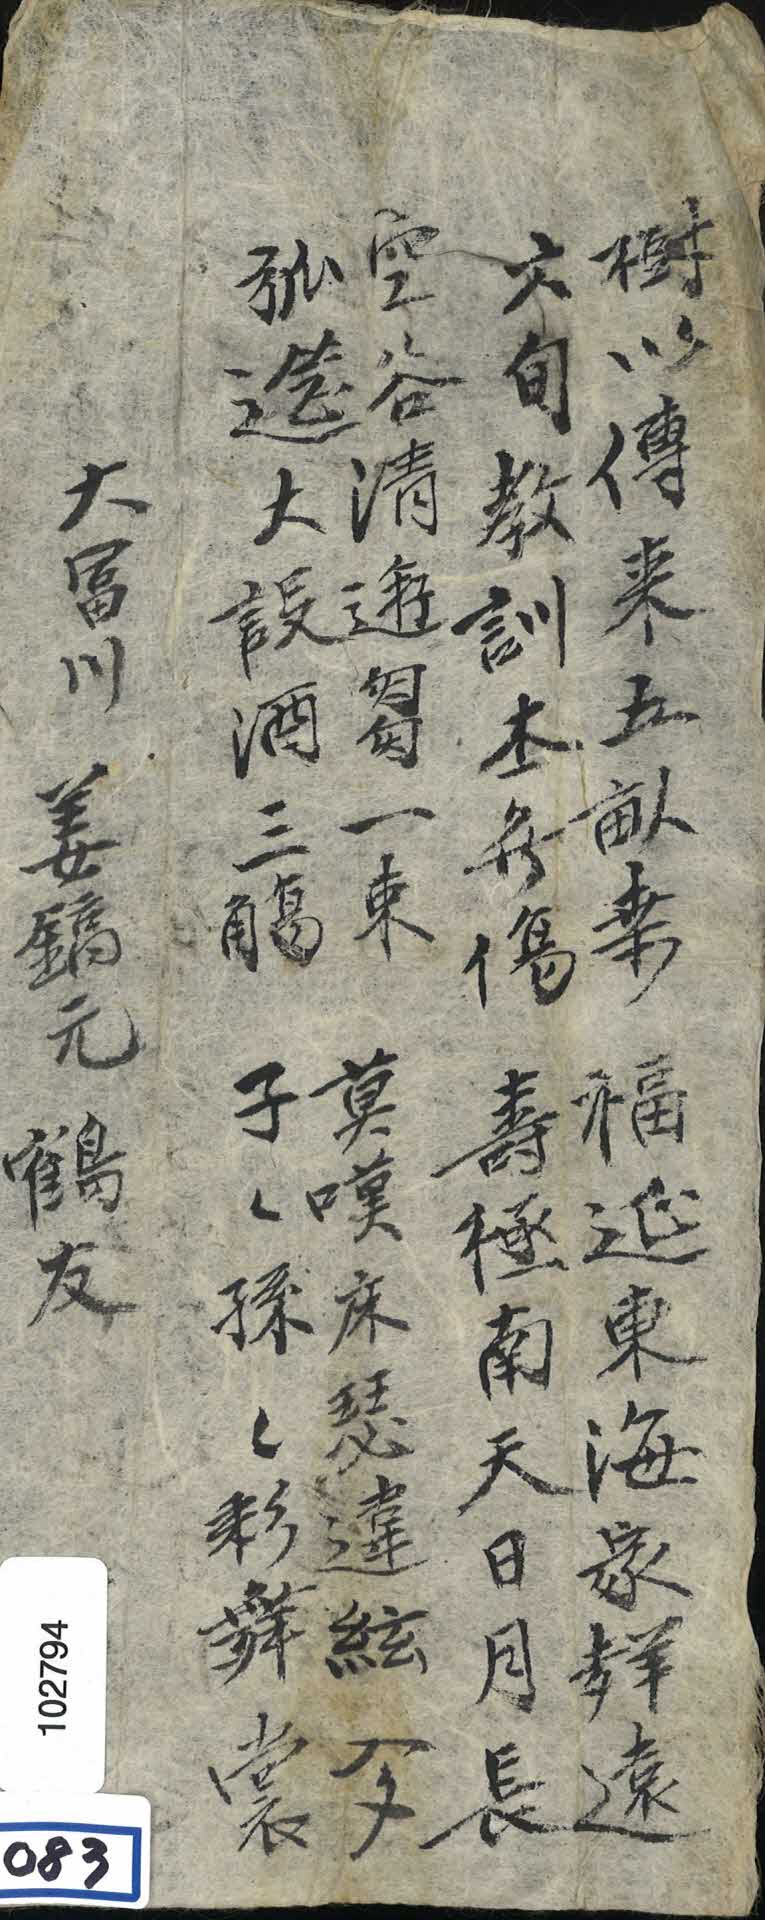 樹以傳来五畝桑 福延東海家群遠
六旬教訓本無傷 壽極南天日月長
空谷清遊芻一束 莫嘆床瑟違絃
弧筵大設酒三觴 子〻孫〻彩舞裳
大冨川 姜鎬元 鶴友
102794
083